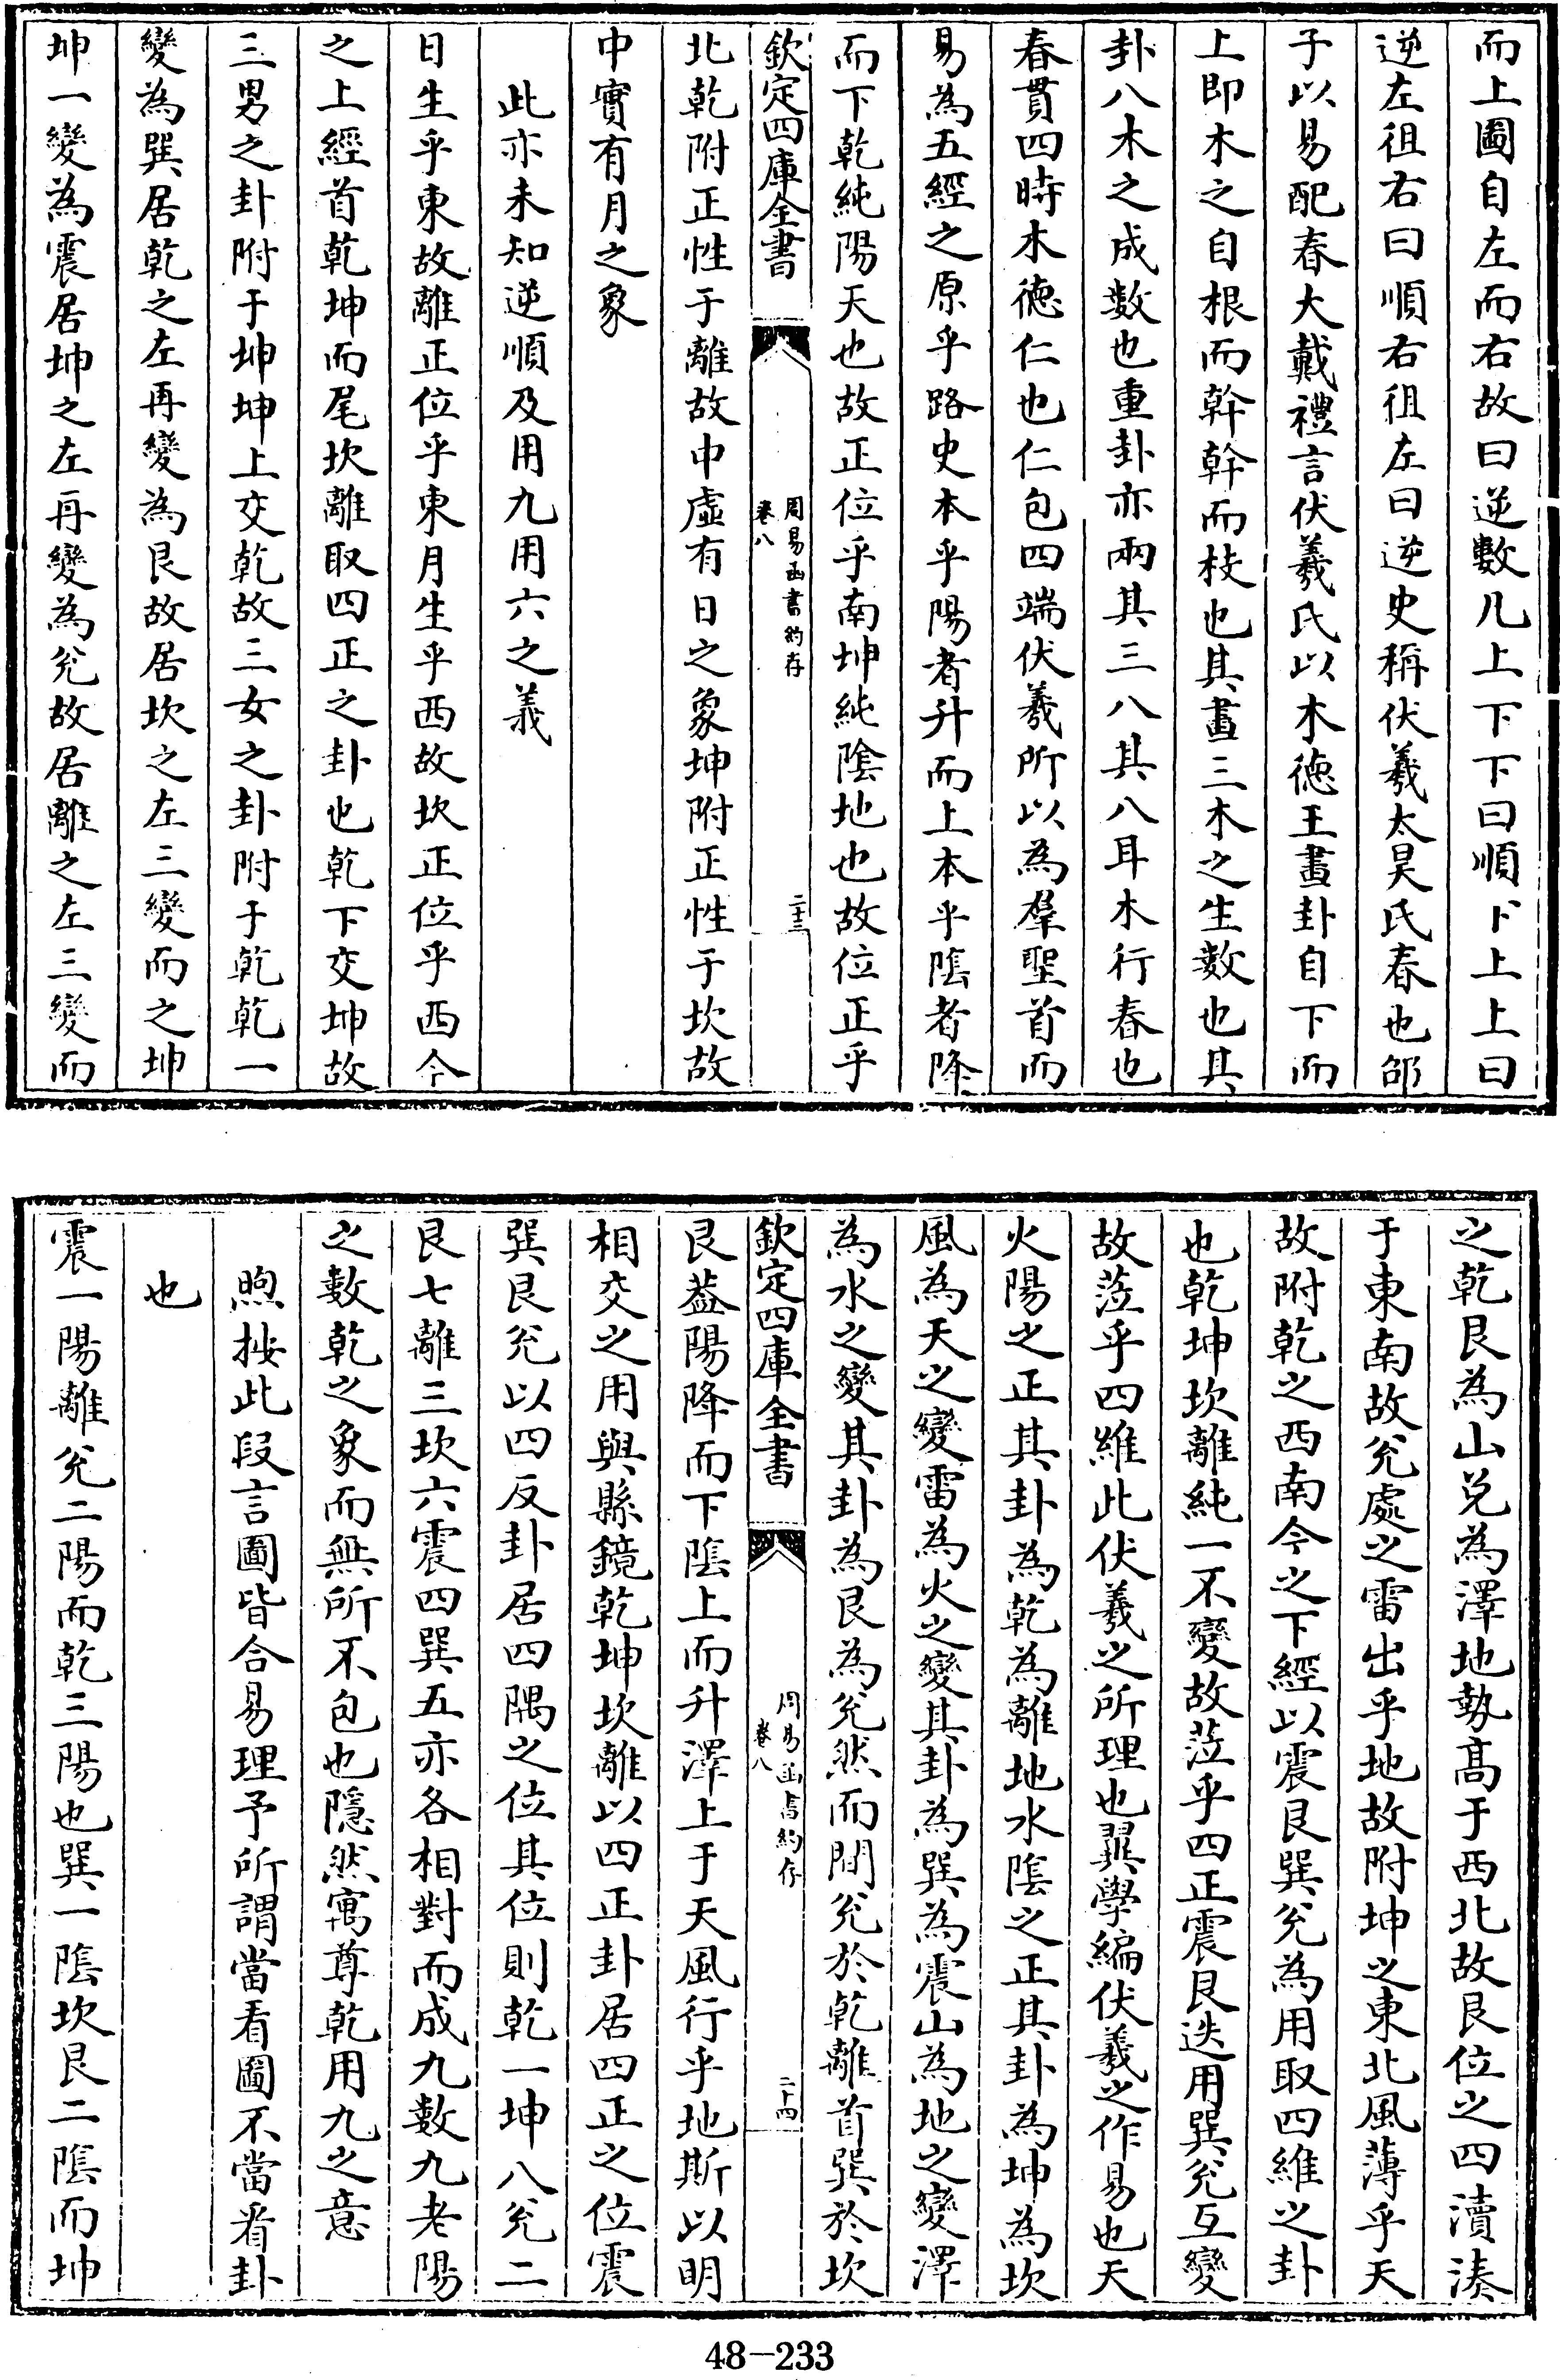 而上圖自左而右故曰逆數凡上下下曰順下上上曰
逆左徂右曰順右徂左曰逆史稱伏羲太昊氏春也邵
子以易配春大戴禮言伏羲氏以木徳王畫卦自下而
上即木之自根而幹幹而枝也其畫三木之生數也其
卦八木之成數也重卦亦兩其三八其八耳木行春也
春貫四時木徳仁也仁包四端伏羲所以為羣聖首而
易為五經之原乎路史本乎陽者升而上本乎陰者降
而下乾純陽天也故正位乎南坤純陰地也故位正乎
欽定四庫全書
周易函書約存
卷八
二十三
北乾附正性于離故中虛有日之象坤附正性于坎故
中實有月之象
此亦未知逆順及用九用六之義
日生乎東故離正位乎東月生乎西故坎正位乎西今
之上經首乾坤而尾坎離取四正之卦也乾下交坤故
三男之卦附于坤坤上交乾故三女之卦附于乾乾一
變為巽居乾之左再變為艮故居坎之左三變而之坤
坤一變為震居坤之左再變為兊故居離之左三變而
之乾艮為山兑為澤地勢髙于西北故艮位之四瀆湊
于東南故兊處之雷出乎地故附坤之東北風薄乎天
故附乾之西南今之下經以震艮巽兊為用取四維之卦
也乾坤坎離純一不變故蒞乎四正震艮迭用巽兊互變
故蒞乎四維此伏羲之所理也羣學編伏羲之作易也天
火陽之正其卦為乾為離地水陰之正其卦為坤為坎
風為天之變雷為火之變其卦為巽為震山為地之變澤
為水之變其卦為艮為兊然而間兊於乾離首巽於坎
欽定四庫全書
周易函書約存
卷八
二十四
艮葢陽降而下陰上而升澤上于天風行乎地斯以明
相交之用與縣鏡乾坤坎離以四正卦居四正之位震
巽艮兊以四反卦居四隅之位其位則乾一坤八兊二
艮七離三坎六震四巽五亦各相對而成九數九老陽
之數乾之象而無所不包也隱然寓尊乾用九之意
煦按此段言圖皆合易理予所謂當看圖不當看卦
也
震一陽離兊二陽而乾三陽也巽一陰坎艮二陰而坤
48-233